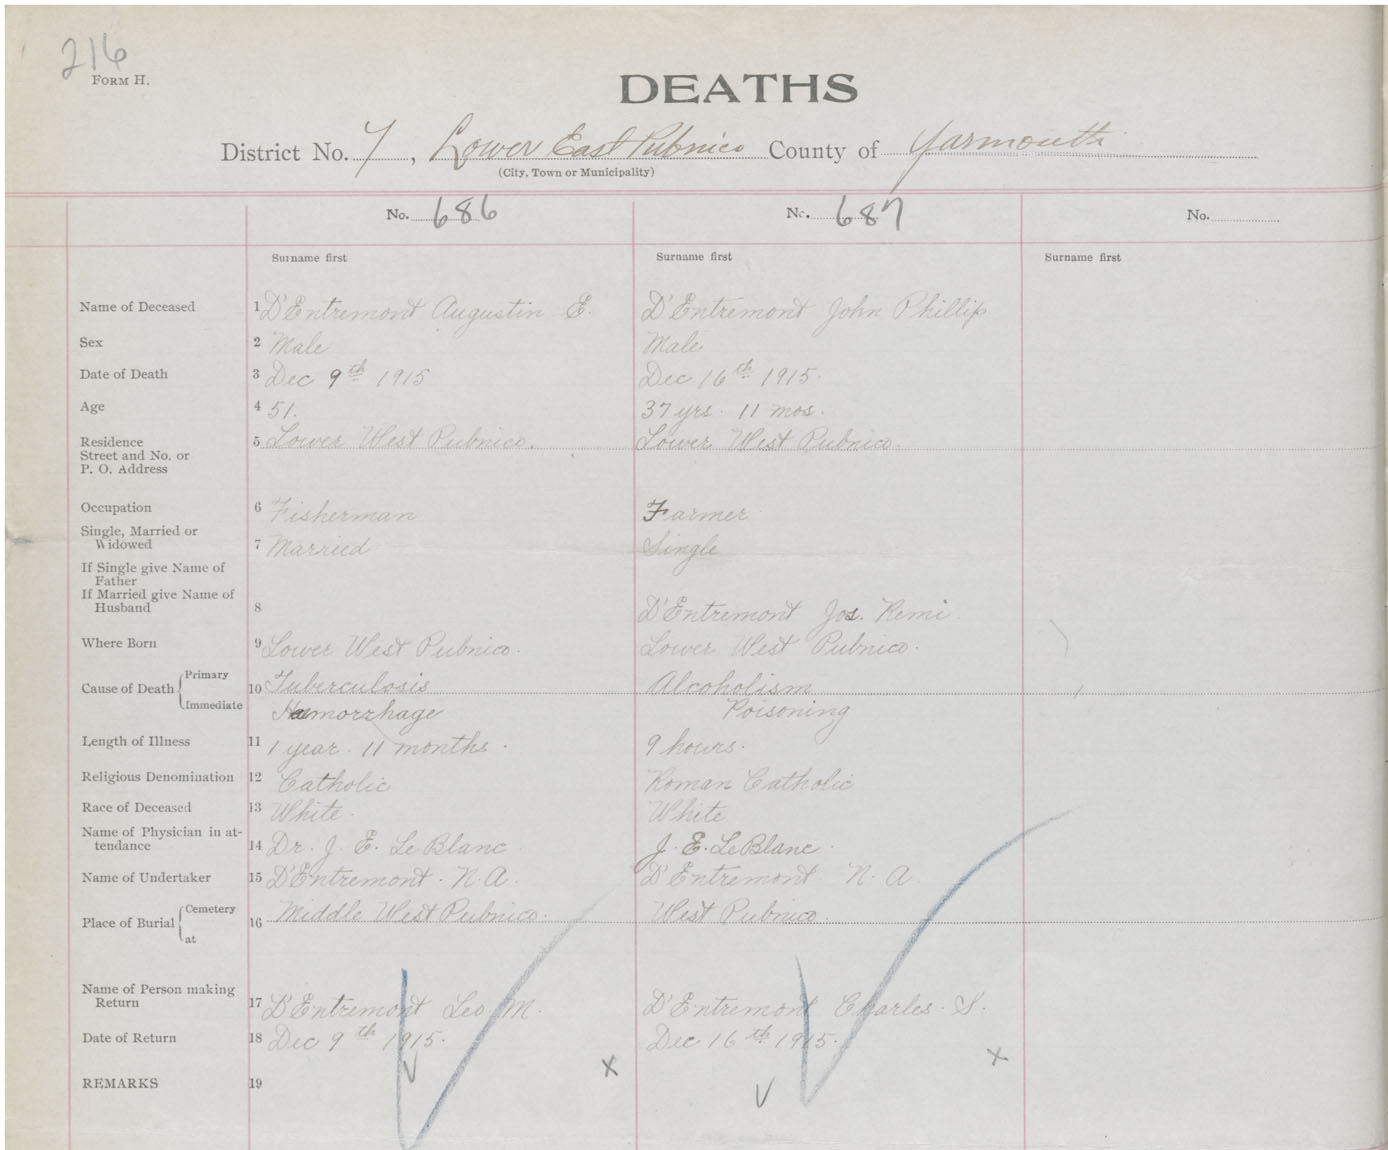 216
FORM H.
DEATHS
District No. 7, Lower East Pubnico County of Yarmouth
(City, Town or Municipality)
No. 686 No. 687 No.
Surname first Surname first Surname first
Name of Deceased 1 D'Entremont Augustin E. D'Entremont John Phillip
Sex 2 Male Male
Date of Death 3 Dec 9th 1915 Dec 16th 1915.
Age 4 51. 37 yrs. 11 mos.
Residence 5 Lower West Pubnico. Lower West Pubnico.
Street and No. or
P. O. Address
Occupation 6 Fisherman Farmer
Single, Married or
Widowed 7 Married Single
If Single give Name of
Father
If Married give Name of
Husband 8 D'Entremont Jos. Remi
Where Born 9 Lower West Pubnico. Lower West Pubnico.
Primary
Cause of Death 10 Tuberculosis Alcoholism
Immediate Haemorrhage Poisoning
Length of Illness 11 1 year. 11 months. 9 hours.
Religious Denomination 12 Catholic Roman Catholic
Race of Deceased 13 White. White
Name of Physician in at-
tendance 14 Dr. J. E. LeBlanc. J. E. LeBlanc.
Name of Undertaker 15 D'Entremont. N. A. D'Entremont N. A.
Cemetery Middle West Pubnico. West Pubnico.
Place of Burial 16
at
Name of Person making
Return 17 D'Entremont Leo M. D'Entremont Charles. S.
Date of Return 18 Dec 9th 1915. Dec 16th 1915.
REMARKS 19